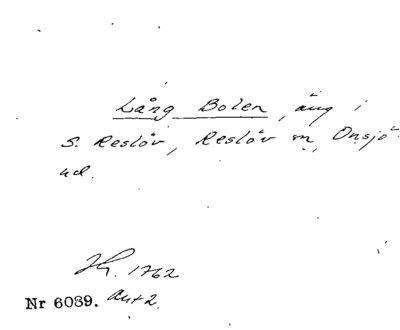 Lång Bolen, äng i
S. Reslöv, Reslöv sn, Onsjö
hd.
1762
Nr 6089. Akt 2.